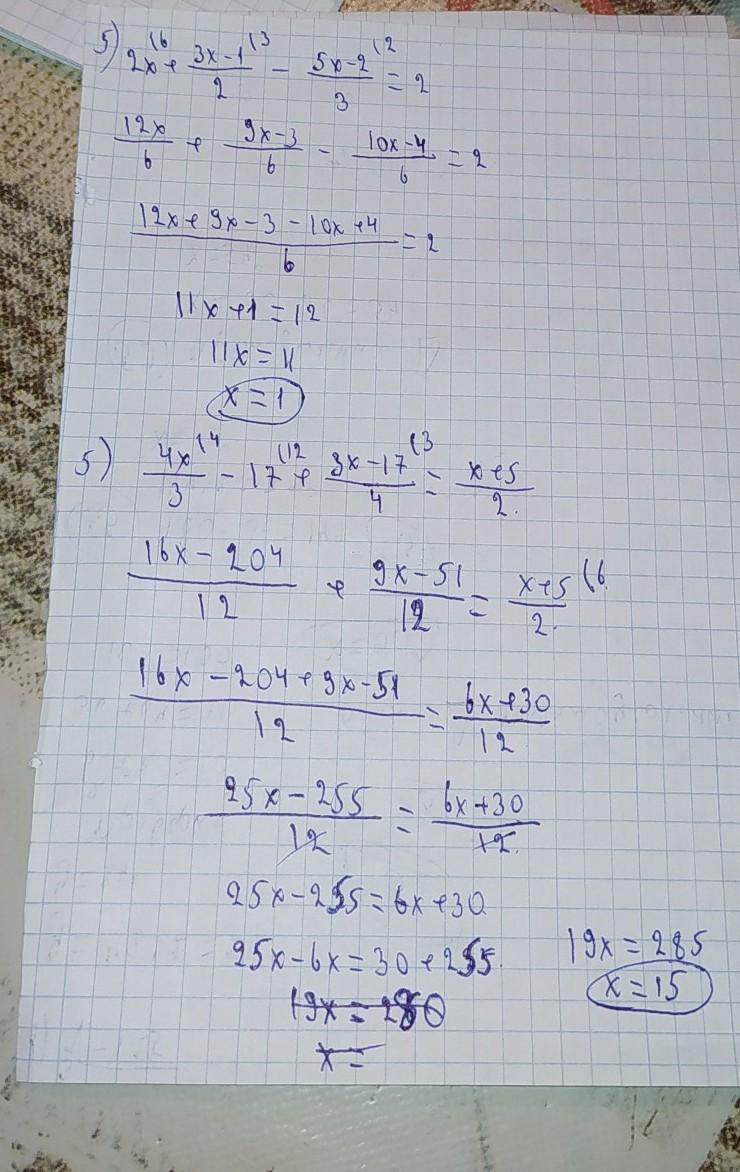 5) 2x(6 + 3x-1/2 (3 - 5x-2/3 (2 = 2
12x/6 + 9x-3/6 - 10x-4/6 = 2
12x+9x-3-10x+4/6 = 2
11x+1=12
11x=11
x=1
5) 4x/3 (4 - 17(12 + 3x-17/4 (3 = x+5/2.
16x-204/12 + 9x-51/12 = x+5/2. (6
16x-204+9x-51/12 = 6x+30/12
25x-255/12 = 6x+30/12.
25x-255=6x+30
25x-6x=30+255.
19x=280
x=
19x=285
x=15